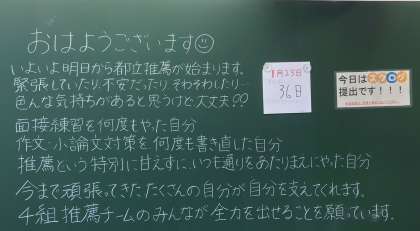 おはようございます☺
いよいよ明日から都立推薦が始まります。
緊張していたり、不安だったり、そわそわしたり…
色んな気持ちがあると思うけど、大丈夫??
面接練習を何度もやった自分
作文・小論文対策を何度も書き直した自分
推薦という特別に甘えずに、いつも通りをあたりまえにやった自分
今まで頑張ってきたたくさんの自分が自分を支えてくれます。
4組推薦チームのみんなが全力を出せることを願っています。
1月25日
36日
今日は
提出です!!!